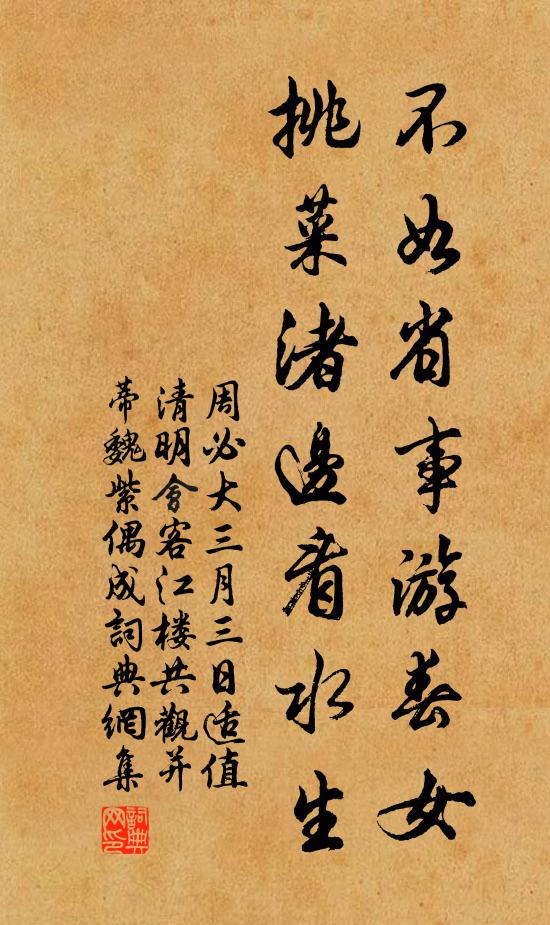 不如省事游春女
挑菜渚邊看水生
周必大三月三日适值
清明會客江楼共觀并
蒂魏紫偶成詞典網集
詞典网印